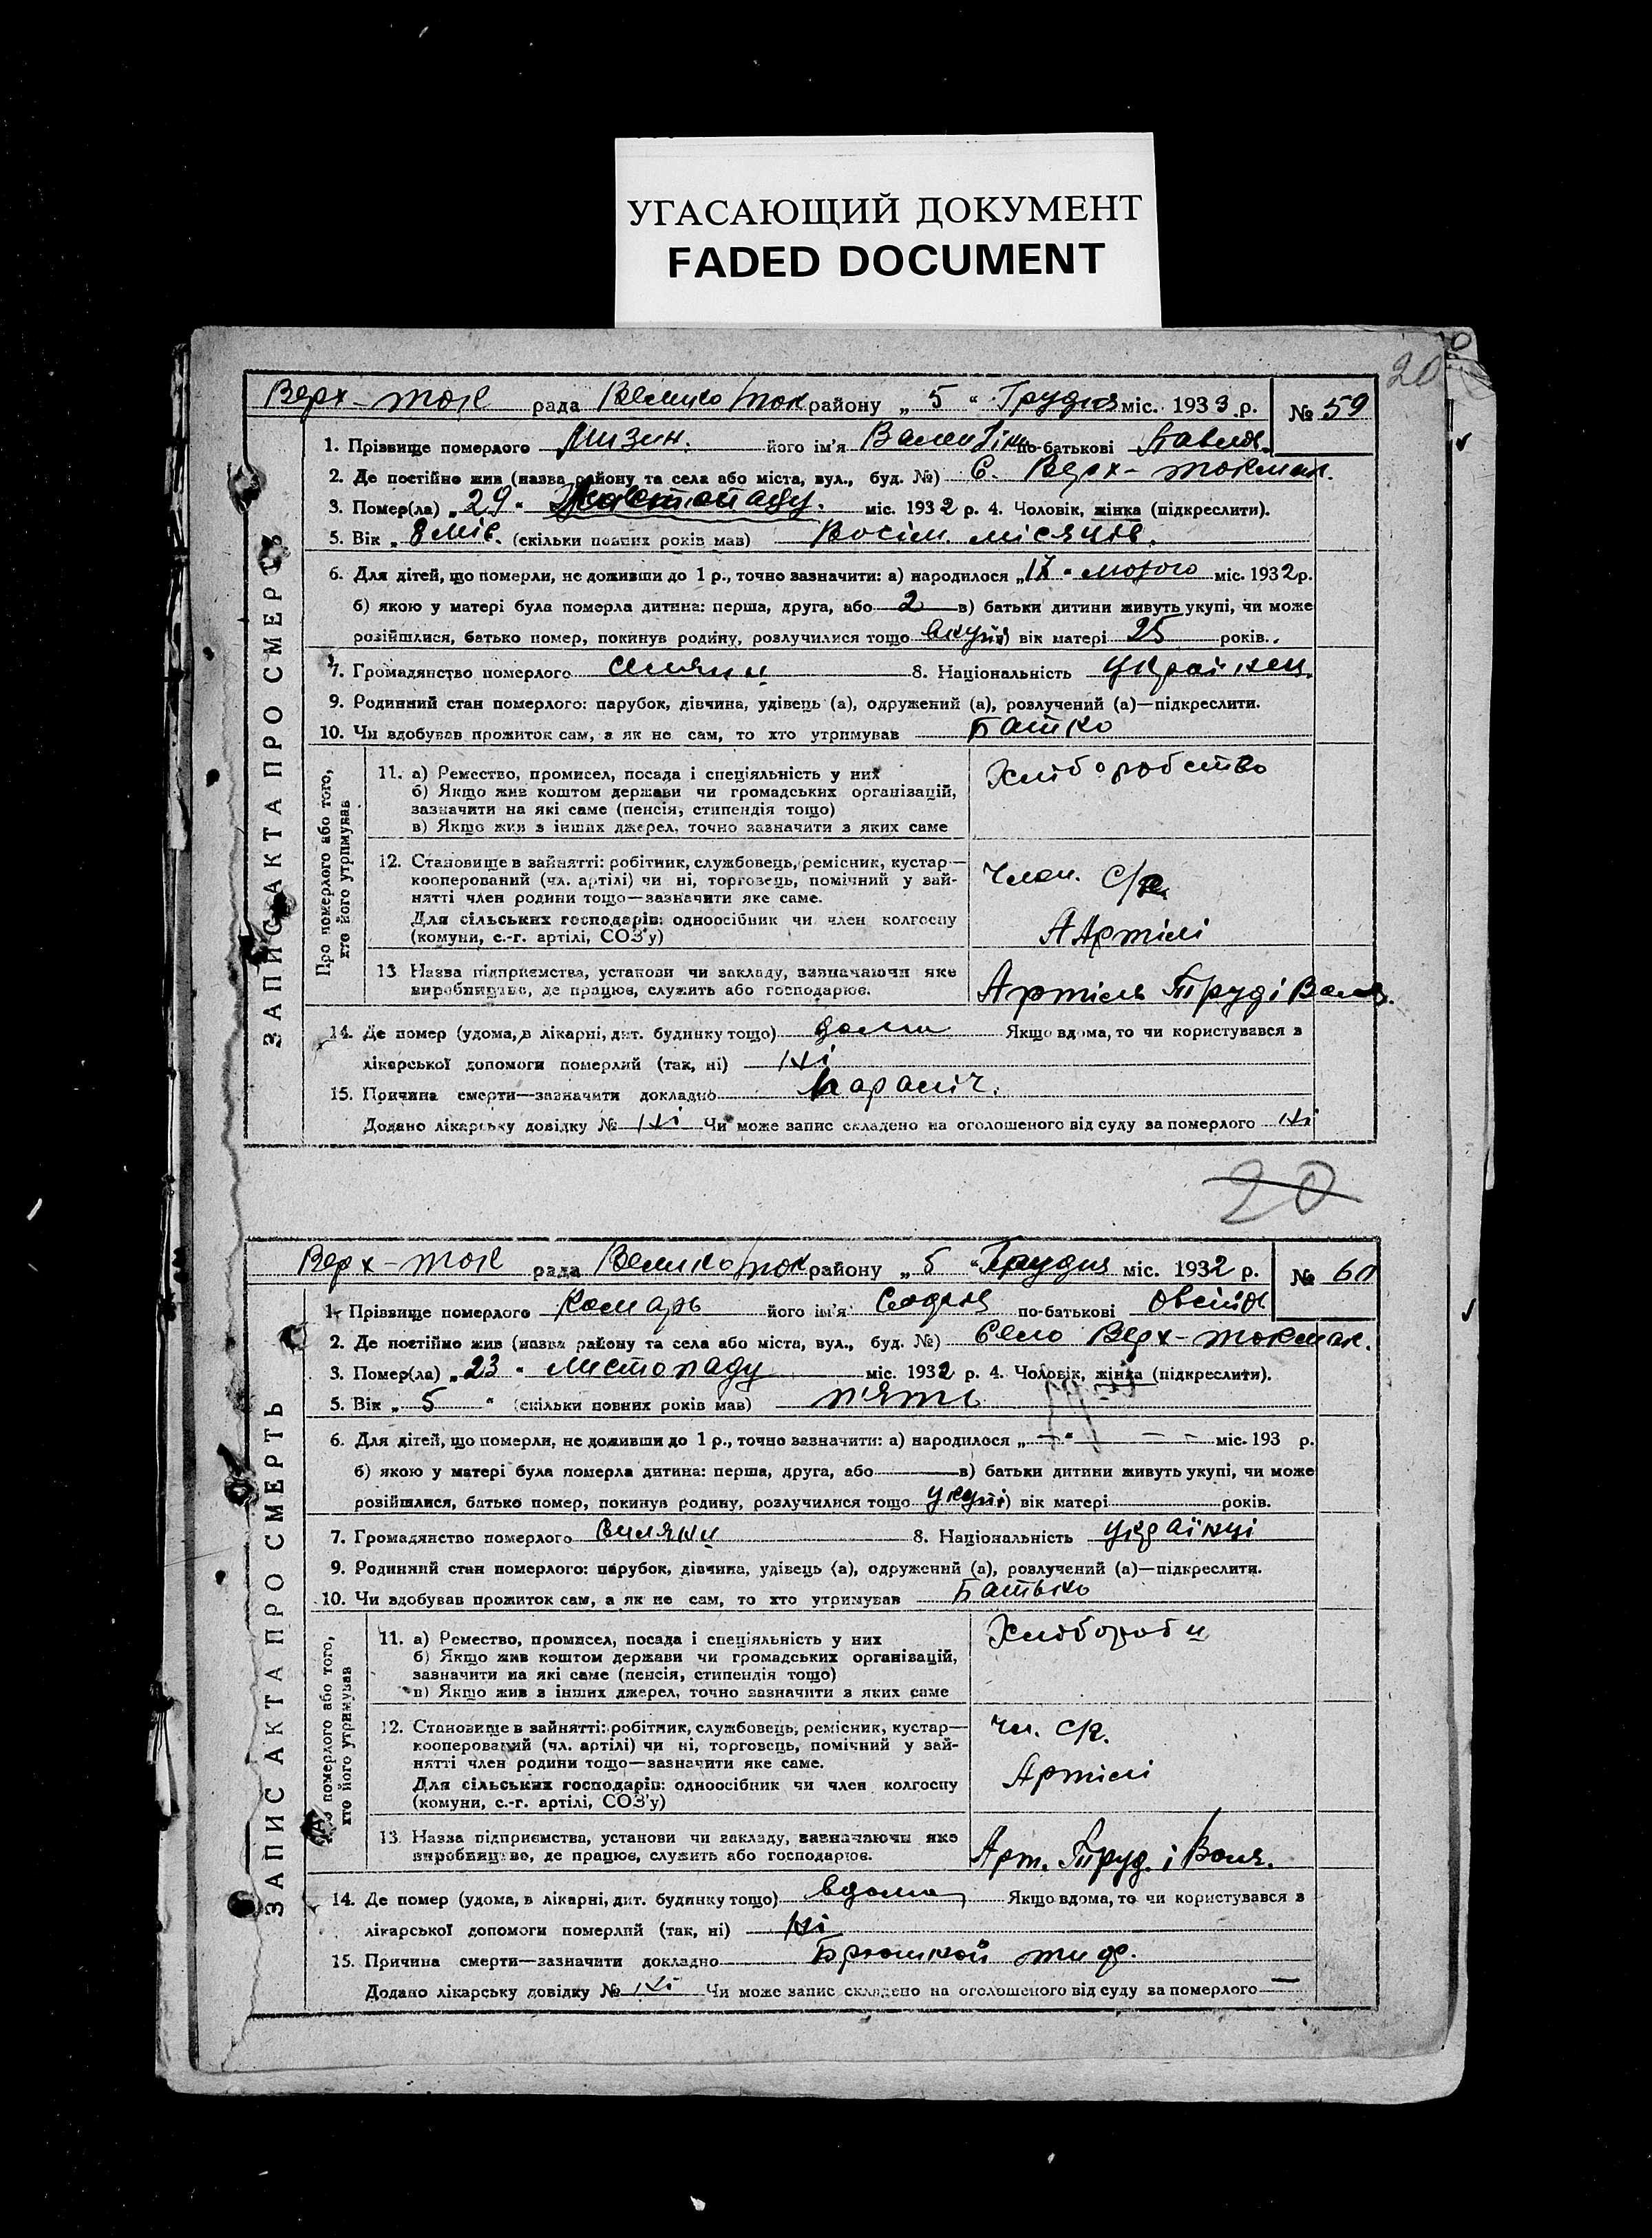 УГАСАЮЩИЙ ДОКУМЕНТ
FADED DOCUMENT
20
Верх-ток рада Велико Ток району „ 5 “ Грудня міс. 1933 р. № 59
1. Прізвище померлого Мизин. його ім'я по-батькові Павлов.
2. Де постійно жив (назва району та села або міста, вул., буд. №) С. Верх-токмак.
3. Помер(ла) „ 29 “ Листопаду. міс. 1932 р. 4. Чоловік, жінка (підкреслити).
5. Вік „ 8 міс. (скільки повних років мав) Восім місяців.
6. Для дітей, що померли, не доживши до 1 р., точно зазначити: а) народилося „ “ Лютого міс. 1932 р.
б) якою у матері була померла дитина: перша, друга, або 2 в) батьки дитини живуть укупі, чи може
розійшлися, батько помер, покинув родину, розлучилися тощо вкупі) вік матері 25 років.
7. Громадянство померлого 8. Національність
9. Родинний стан померлого: парубок, дівчина, удівець (а), одружений (а), розлучений (а)—підкреслити.
10. Чи здобував прожиток сам, а як не сам, то хто утримував Батко
ЗАПИС АКТА ПРО СМЕРТЬ
Про померлого або того,
хто його утримував
11. а) Ремество, промисел, посада і спеціяльність у них Хліборобство
б) Якщо жив коштом держави чи громадських організацій,
зазначити на які саме (пенсія, стипендія тощо)
в) Якщо жив з інших джерел, точно зазначити з яких саме
12. Становище в зайнятті: робітник, службовець, ремісник, кустар—
кооперований (чл. артілі) чи ні, торговець, помічний у зай-
нятті член родини тощо—зазначити яке саме. Член. С/г.
Для сільських господарів: одноосібник чи член колгоспу
(комуни, с.-г. артілі, СОЗ'у) Артілі
13. Назва підприємства, установи чи закладу, зазначаючи яке
виробництво, де працює, служить або господарює. Артіль Труд і Воля.
14. Де помер (удома, в лікарні, дит. будинку тощо) дома Якщо вдома, то чи користувався з
лікарської допомоги померлий (так, ні) ні
15. Причина смерти—зазначити докладно Параліч.
Додано лікарську довідку № ні Чи може запис складено на оголошеного від суду за померлого ні
20
Верх-ток рада Велико Ток району „ 5 “ Грудня міс. 1932 р. № 60
1. Прізвище померлого Комарь його ім'я по-батькові
2. Де постійно жив (назва району та села або міста, вул., буд. №) Село Верх-токмак.
3. Помер(ла) „ 23 “ Листопаду міс. 1932 р. 4. Чоловік, жінка (підкреслити).
5. Вік „ 5 “ (скільки повних років мав) п'ять
6. Для дітей, що померли, не доживши до 1 р., точно зазначити: а) народилося „ — “ — — міс. 193 р.
б) якою у матері була померла дитина: перша, друга, або — в) батьки дитини живуть укупі, чи може
розійшлися, батько помер, покинув родину, розлучилися тощо укупі) вік матері років.
7. Громадянство померлого 8. Національність українці
9. Родинний стан померлого: парубок, дівчина, удівець (а), одружений (а), розлучений (а)—підкреслити.
10. Чи здобував прожиток сам, а як не сам, то хто утримував Батько
ЗАПИС АКТА ПРО СМЕРТЬ
померлого або того,
хто його утримував
11. а) Ремество, промисел, посада і спеціяльність у них Хлібороби
б) Якщо жив коштом держави чи громадських організацій,
зазначити на які саме (пенсія, стипендія тощо)
в) Якщо жив з інших джерел, точно зазначити з яких саме
12. Становище в зайнятті: робітник, службовець, ремісник, кустар— чл. с/г.
кооперований (чл. артілі) чи ні, торговець, помічний у зай-
нятті член родини тощо—зазначити яке саме. Артілі
Для сільських господарів: одноосібник чи член колгоспу
(комуни, с.-г. артілі, СОЗ'у)
13. Назва підприємства, установи чи закладу, зазначаючи яке
виробництво, де працює, служить або господарює. Арт. Труд. і Воля.
14. Де помер (удома, в лікарні, дит. будинку тощо) вдома Якщо вдома, то чи користувався з
лікарської допомоги померлий (так, ні) ні
15. Причина смерти—зазначити докладно Брюшной тиф.
Додано лікарську довідку № ні Чи може запис складено на оголошеного від суду за померлого —